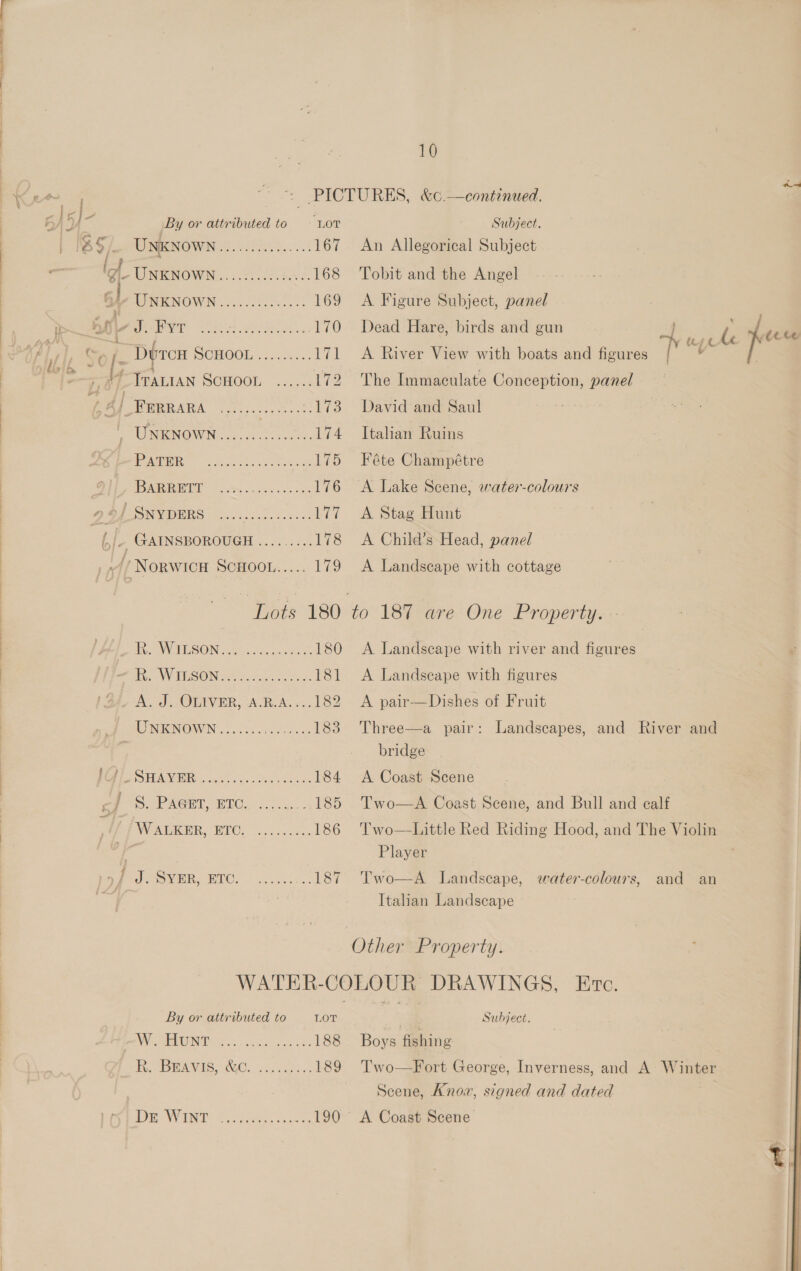 10
PICTURES, &c.—continued.
By or attributed to LOT Subject.
UNKNOWN ............ 167 An Allegorical Subject
UNKNOWN ............ 168 Tobit and the Angel
UNKNOWN ............ 169 A Figure Subject, panel
J. FYT ............ 170 Dead Hare, birds and gun
DUTCH SCHOOL ......... 171 A River View with boats and figures
ITALIAN SCHOOL ...... 172 The Immaculate Conception, panel
FERRARA ............ 173 David and Saul
UNKNOWN ............ 174 Italian Ruins
PATER ............ 175 Féte Champétre
BARRETT ............ 176 A Lake Scene, water-colours
SNYDERS ............ 177 A Stag Hunt
GAINSBOROUGH ......... 178 A Child's Head, panel
NORWICH SCHOOL..... 179 A Landscape with cottage
Lots 180 to 187 are One Property.
R. WILSON ............ 180 A Landscape with river and figures
R. WILSON ............ 181 A Landscape with figures
A. J. OLIVER, A.R.A.... 182 A pair—Dishes of Fruit
UNKNOWN ............ 183 Three—a pair: Landscapes, and River and
bridge
SHAYER ............ 184 A Coast Scene
S. PAGET, ETC. ......... 185 Two—A Coast Scene, and Bull and calf
WALKER, ETC. ......... 186 Two—Little Red Riding Hood, and The Violin
Player
J. SYER, ETC. ......... 187 Two—A Landscape, water-colours, and an
Italian Landscape
Other Property.
WATER-COLOUR DRAWINGS, ETC.
By or attributed to LOT Subject.
W. HUNT ............ 188 Boys fishing
R. BEAVIS, &C. ......... 189 Two—Fort George, Inverness, and A Winter
Scene, Knox, signed and dated
DE WINT ............ 190 A Coast Scene